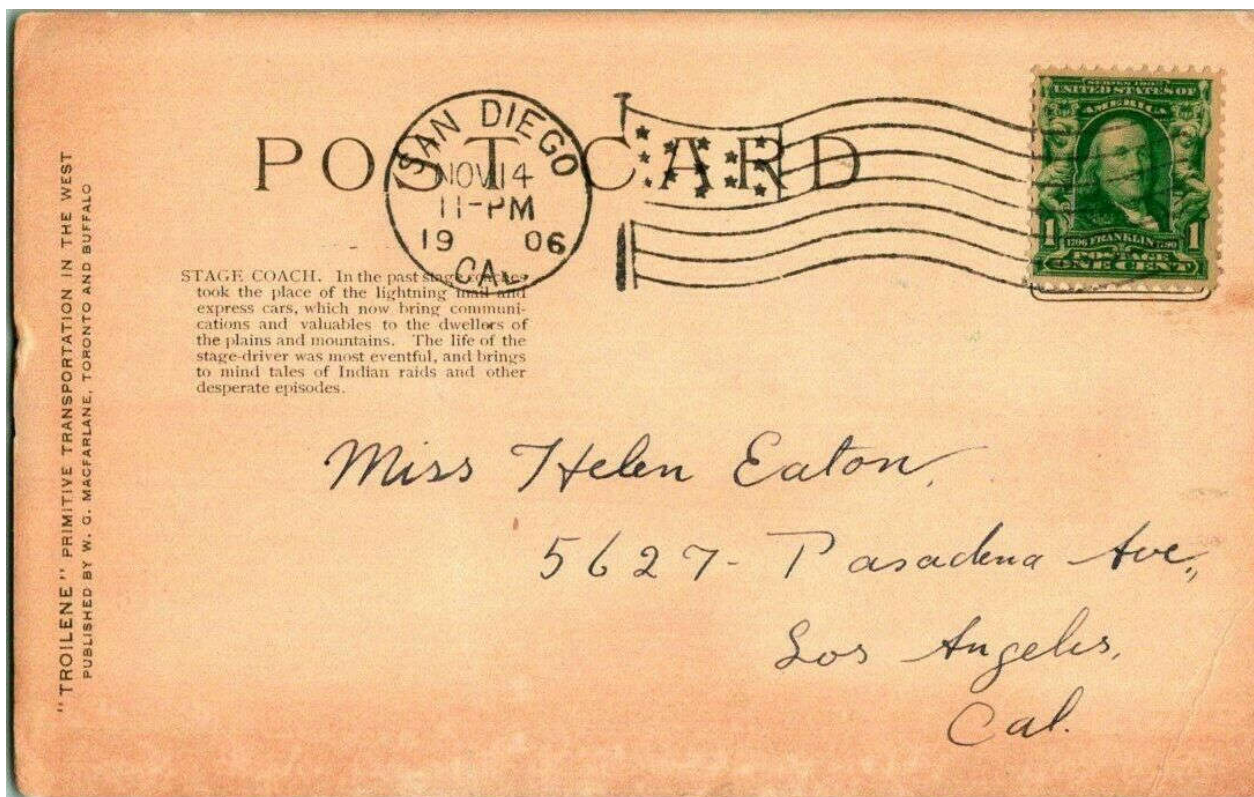 "TROILENE" PRIMITIVE TRANSPORTATION IN THE WEST
PUBLISHED BY W. G. MACFARLANE, TORONTO AND BUFFALO
POST CARD
SAN DIEGO
NOV 14
11-PM
19 06
CA
SERIES 1902
UNITED STATES OF
AMERICA
1 1
1706 FRANKLIN 1790
POSTAGE
ONE CENT
STAGE COACH. In the past stage coaches
took the place of the lightning mail and
express cars, which now bring communi-
cations and valuables to the dwellers of
the plains and mountains. The life of the
stage-driver was most eventful, and brings
to mind tales of Indian raids and other
desperate episodes.
Miss Helen Eaton,
5627- Pasadena Ave.,
Los Angeles,
Cal.